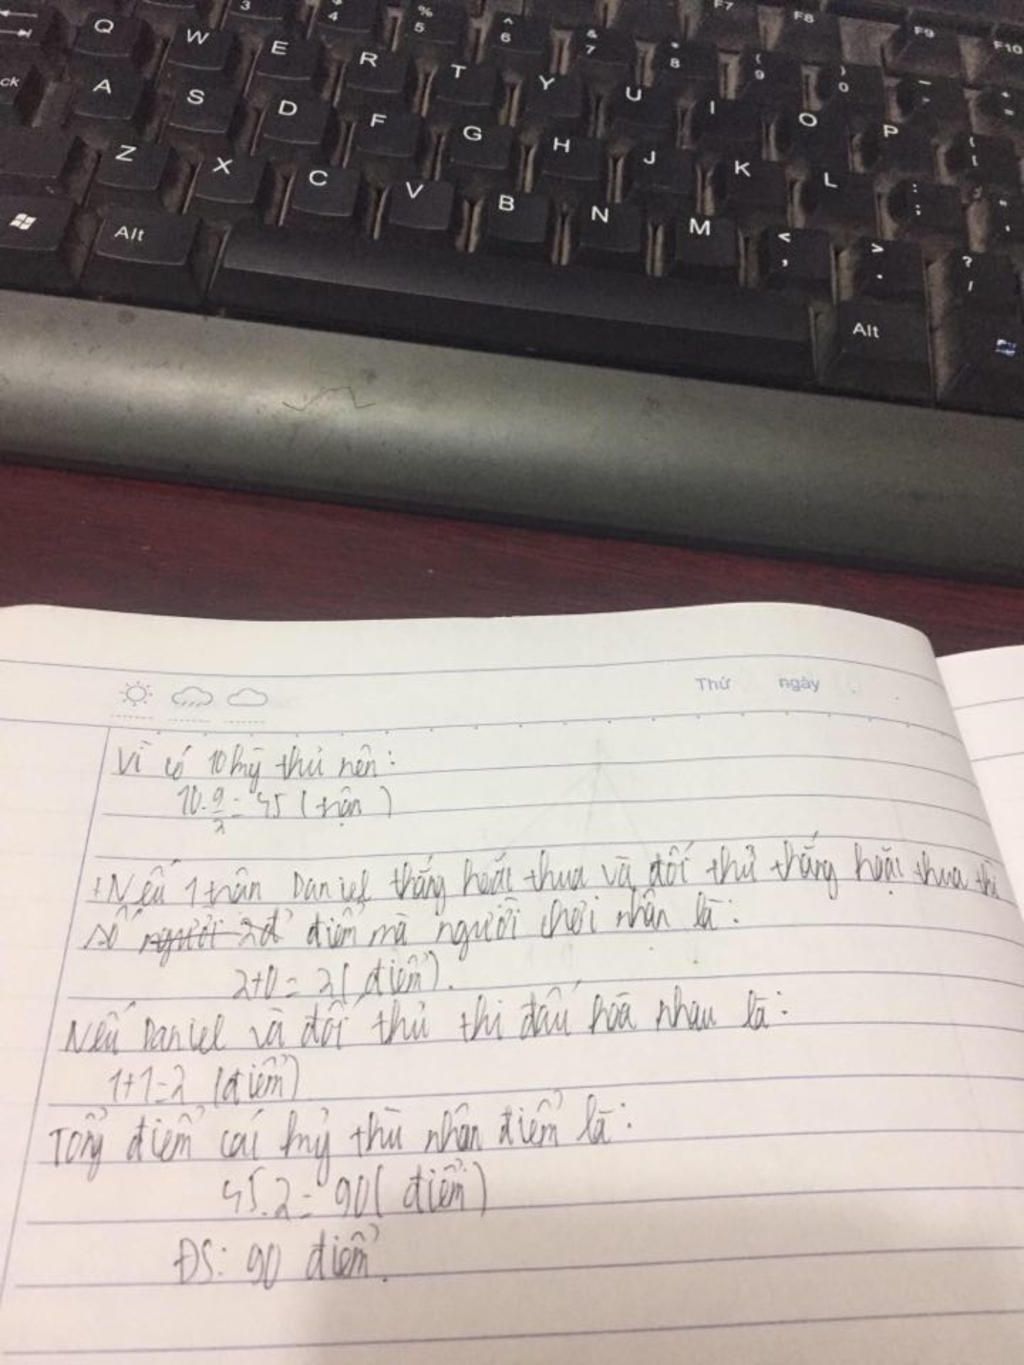 3 $ 4 % 5 ^ 6 & 7 * 8 ( 9 ) 0 F7 F8 F9 F10
Q W E R T Y U I O P
ck A S D F G H J K L : ;
Z X C V B N M < , > . ? /
Alt Alt
Thứ ngày
Vì có 10 kỳ thủ nên:
10.9/2 = 45 (trận)
+Nếu 1 trận Daniel thắng hoặc thua và đối thủ thắng hoặc thua thì
số người 2đ điểm mà người chơi nhận là:
2+0 = 2 (điểm).
Nếu Daniel và đối thủ thi đấu hòa nhau là:
1+1=2 (điểm)
Tổng điểm các kỳ thủ nhận điểm là:
45.2 = 90 (điểm)
ĐS: 90 điểm.